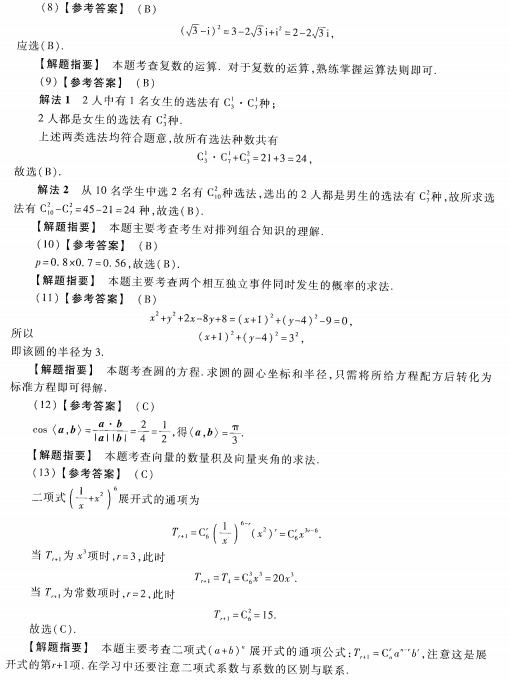 (8)【参考答案】 (B)
(√3-i)²=3-2√3i+i²=2-2√3i,
应选(B).
【解题指要】 本题考查复数的运算. 对于复数的运算,熟练掌握运算法则即可.
(9)【参考答案】 (B)
解法1 2人中有1名女生的选法有C₃¹·C₇¹种;
2人都是女生的选法有C₃²种.
上述两类选法均符合题意,故所有选法种数共有
C₃¹·C₇¹+C₃²=21+3=24,
故选(B).
解法2 从10名学生中选2名有C₁₀²种选法,选出的2人都是男生的选法有C₇²种,故所求选
法有C₁₀²-C₇²=45-21=24种,故选(B).
【解题指要】 本题主要考查考生对排列组合知识的理解.
(10)【参考答案】 (B)
p=0.8×0.7=0.56,故选(B).
【解题指要】 本题主要考查两个相互独立事件同时发生的概率的求法.
(11)【参考答案】 (B)
x²+y²+2x-8y+8=(x+1)²+(y-4)²-9=0,
所以 (x+1)²+(y-4)²=3²,
即该圆的半径为3.
【解题指要】 本题考查圆的方程. 求圆的圆心坐标和半径,只需将所给方程配方后转化为
标准方程即可得解.
(12)【参考答案】 (C)
cos〈a,b〉=a·b/|a||b|=2/4=1/2,得〈a,b〉=π/3.
【解题指要】 本题考查向量的数量积及向量夹角的求法.
(13)【参考答案】 (C)
二项式(1/x+x²)⁶展开式的通项为
Tᵣ₊₁=C₆ʳ(1/x)⁶⁻ʳ(x²)ʳ=C₆ʳx³ʳ⁻⁶.
当Tᵣ₊₁为x³项时,r=3,此时
Tᵣ₊₁=T₄=C₆³x³=20x³.
当Tᵣ₊₁为常数项时,r=2,此时
Tᵣ₊₁=C₆²=15.
故选(C).
【解题指要】 本题主要考查二项式(a+b)ⁿ展开式的通项公式:Tᵣ₊₁=Cₙʳaⁿ⁻ʳbʳ,注意这是展
开式的第r+1项. 在学习中还要注意二项式系数与系数的区别与联系.